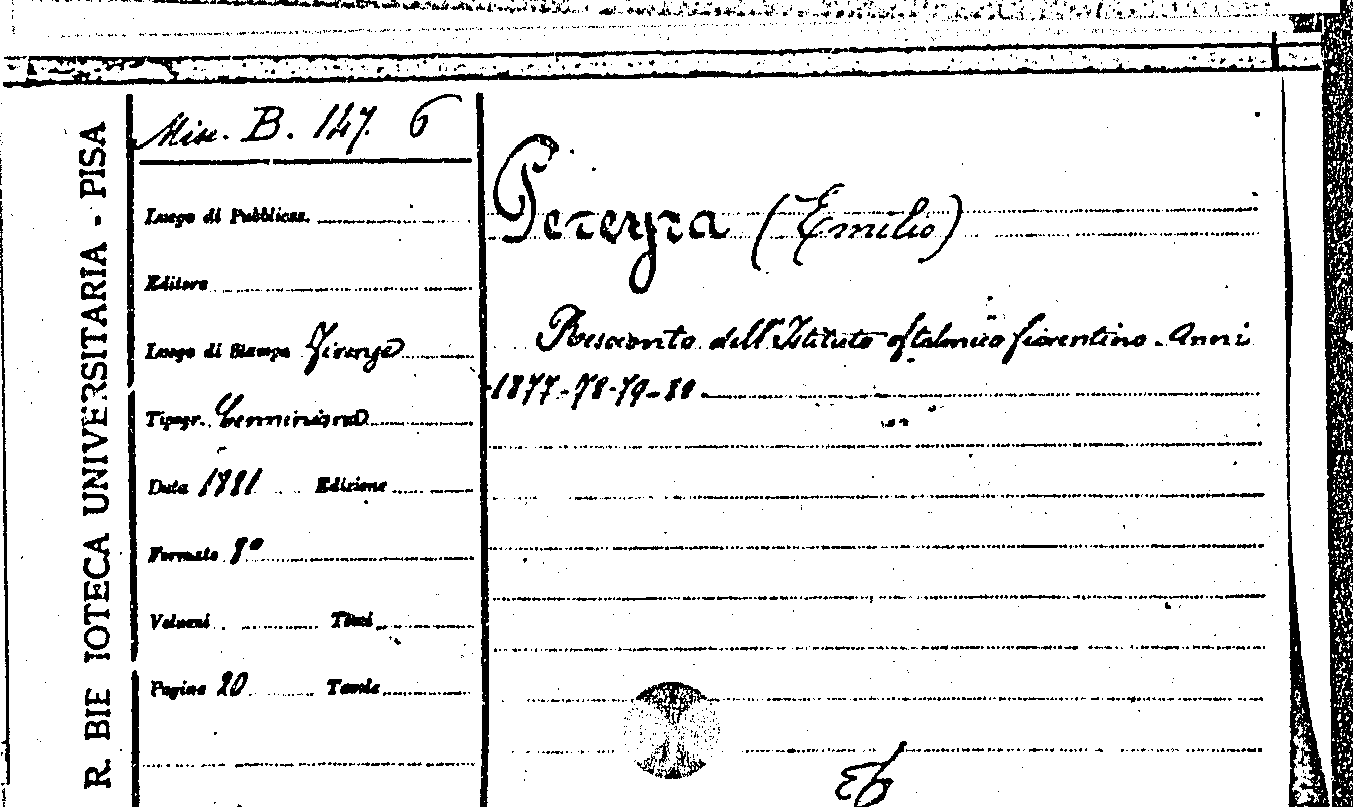 R. BIBLIOTECA UNIVERSITARIA - PISA
Misc. B. 147. 6
Luogo di Pubblicaz.
Editore
Luogo di Stampa Firenze
Tipogr. Cenniniana
Data 1881 Edizione
Formato 8°
Volumi Tomi
Pagine 20 Tavole
Pereyra (Emilio)
Resoconto dell'Istituto oftalmico fiorentino. Anni
1877-78-79-80